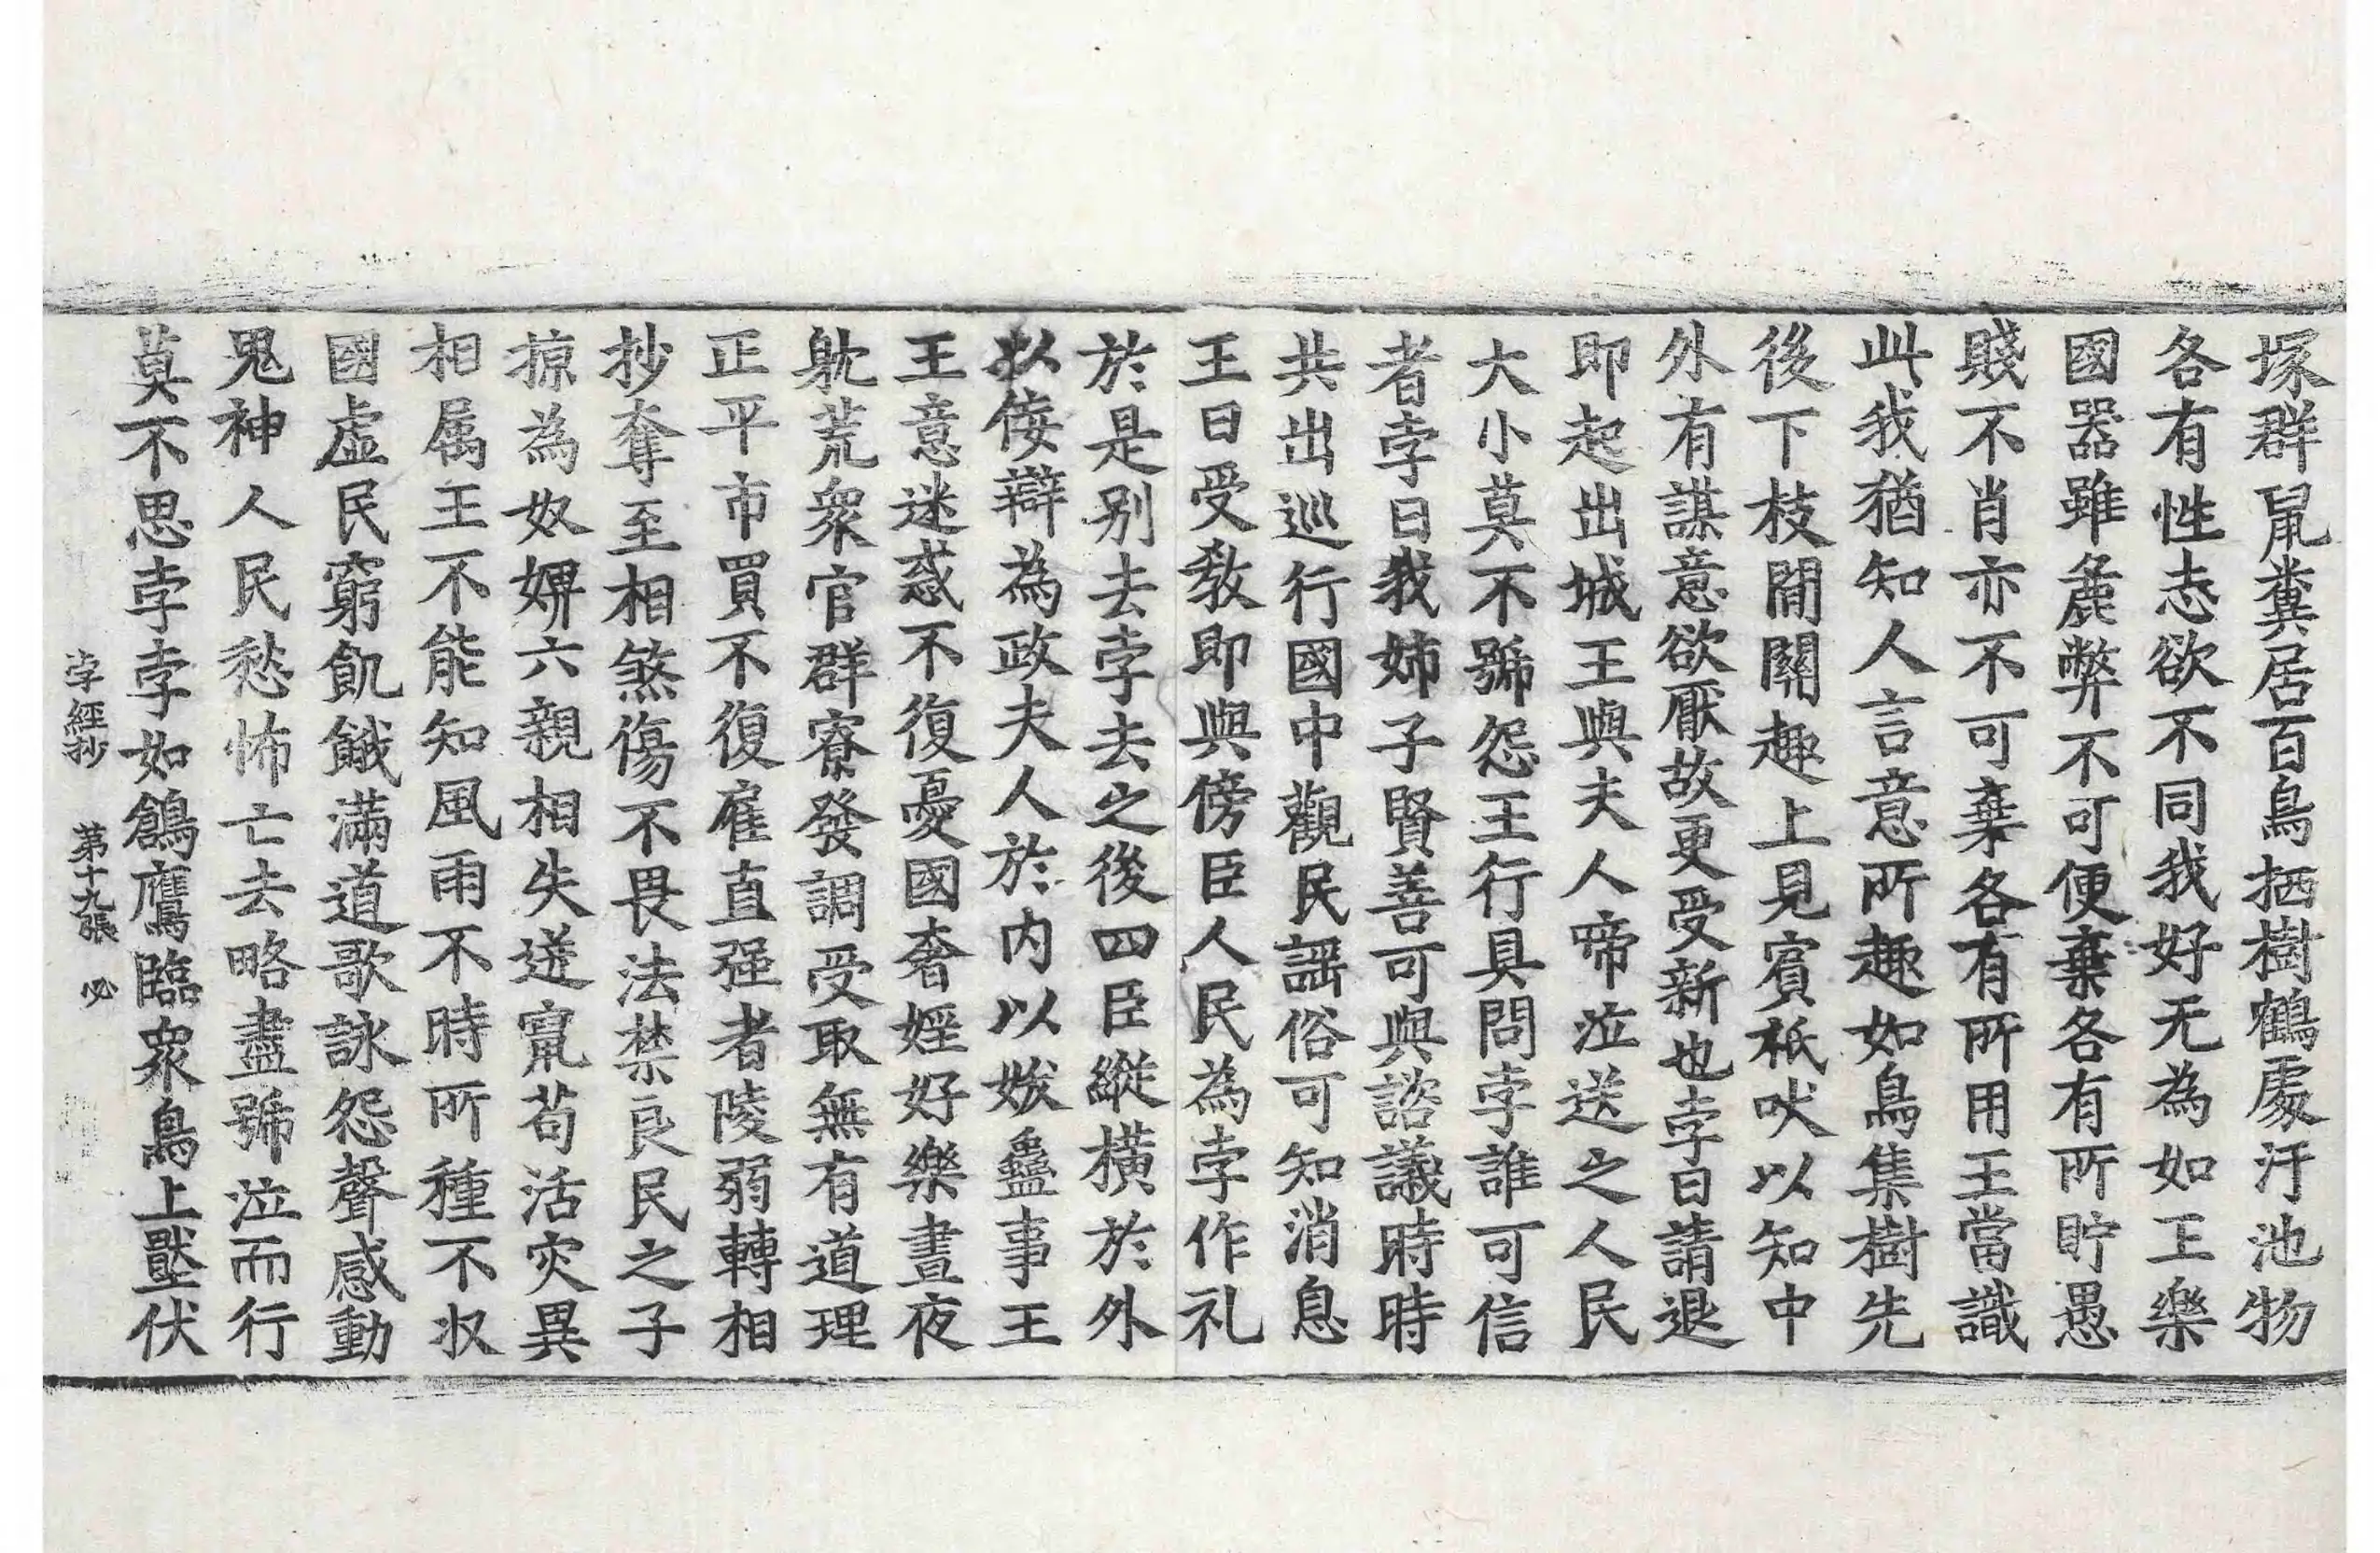 塚群鼠糞居百鳥栖樹鶴處汙池物
各有性志欲不同我好无為如王樂
國器雖麁弊不可便棄各有所貯愚
賤不肖亦不可棄各有所用王當識
此我猶知人言意所趣如鳥集樹先
後下枝閒關趣上見賓秪吠以知中
外有謀意欲厭故更受新也孛曰請退
即起出城王與夫人啼泣送之人民
大小莫不號怨王行具問孛誰可信
者孛曰我姊子賢善可與諮議時時
共出巡行國中觀民謡俗可知消息
王曰受教即與傍臣人民為孛作礼
於是別去孛去之後四臣縱橫於外
以倿辯為政夫人於内以妭蠱事王
王意迷惑不復憂國奢婬好樂晝夜
躭荒衆官群寮發調受取無有道理
正平市買不復雇直强者陵弱轉相
抄奪至相煞傷不畏法禁良民之子
掠為奴婢六親相失迸竄苟活灾異
相属王不能知風雨不時所種不收
國虚民窮飢餓滿道歌詠怨聲感動
鬼神人民愁怖亡去略盡號泣而行
莫不思孛孛如鶬鷹臨衆鳥上壓伏
孛經抄　第十九張　必